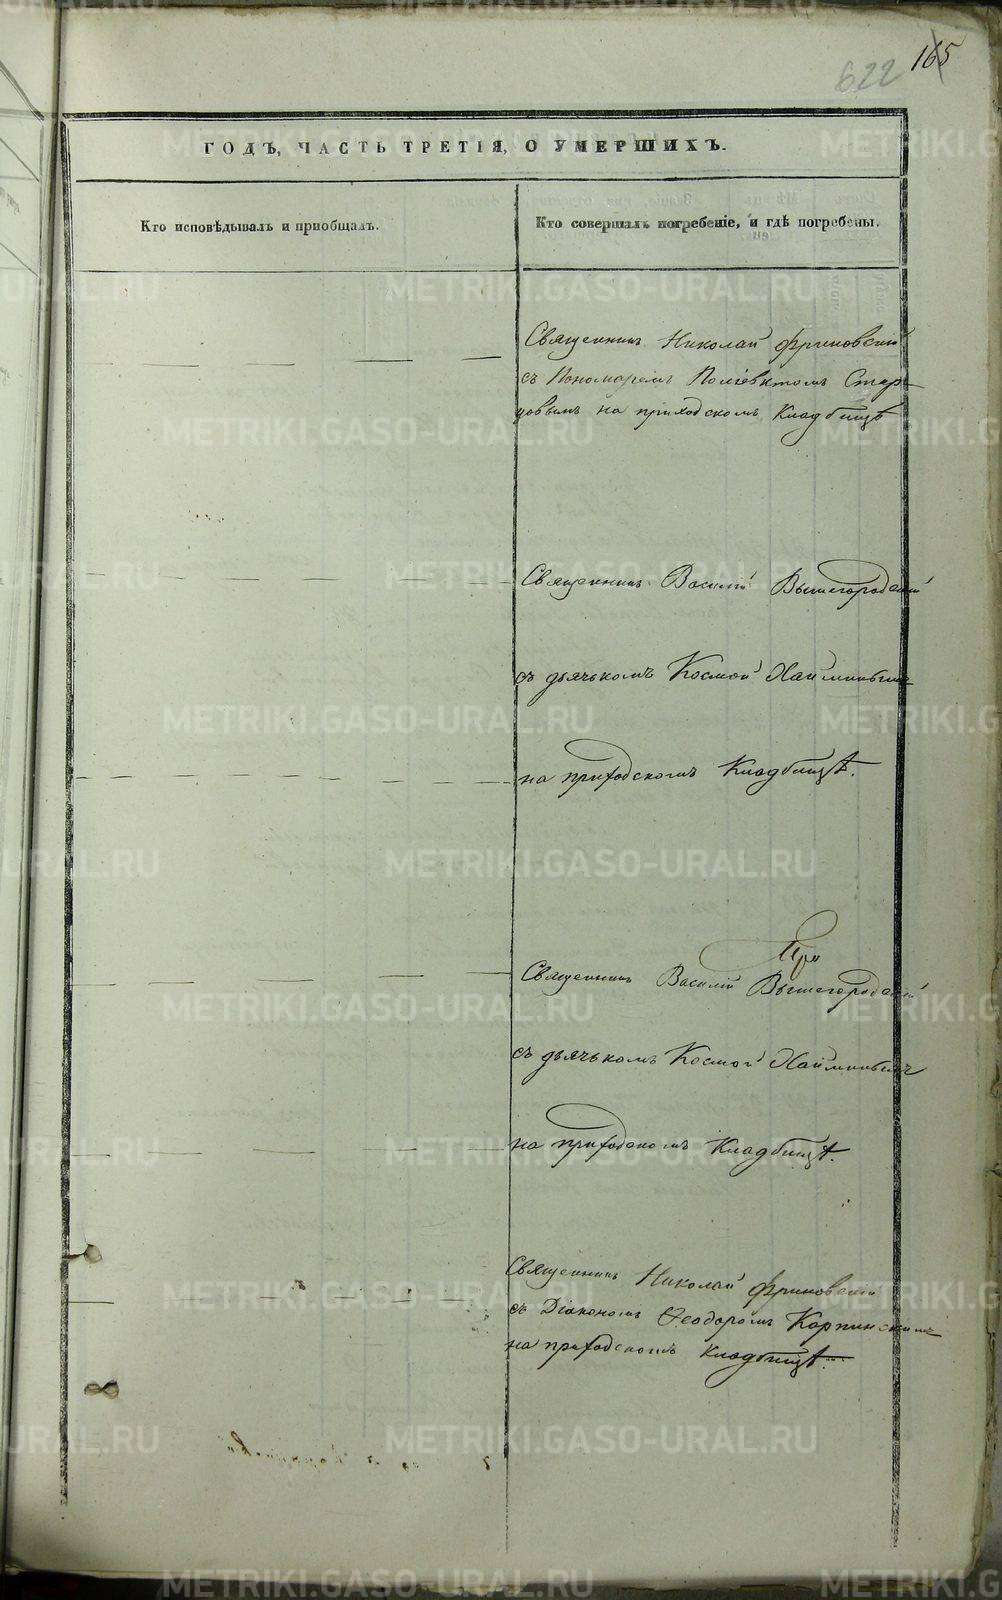 622 165
ГОДЪ, ЧАСТЬ ТРЕТІЯ, О УМЕРШИХЪ.
Кто исповѣдывалъ и пріобщалъ.
Кто совершалъ погребеніе, и гдѣ погребены.
Священникъ Николай Фриновскій
съ Пономаремъ Поліевктомъ Стар-
цовымъ на приходскомъ Кладбищѣ
Священникъ Василій Вышегородскій
съ дьячькомъ Космой
на приходскомъ Кладбищѣ.
Священникъ Василій Вышегородскій
съ дьячькомъ Космой
на приходскомъ Кладбищѣ.
Священникъ Николай Фриновскій
съ Діакономъ Ѳеодоромъ Карпинскимъ
на приходскомъ Кладбищѣ.
METRIKI.GASO-URAL.RU